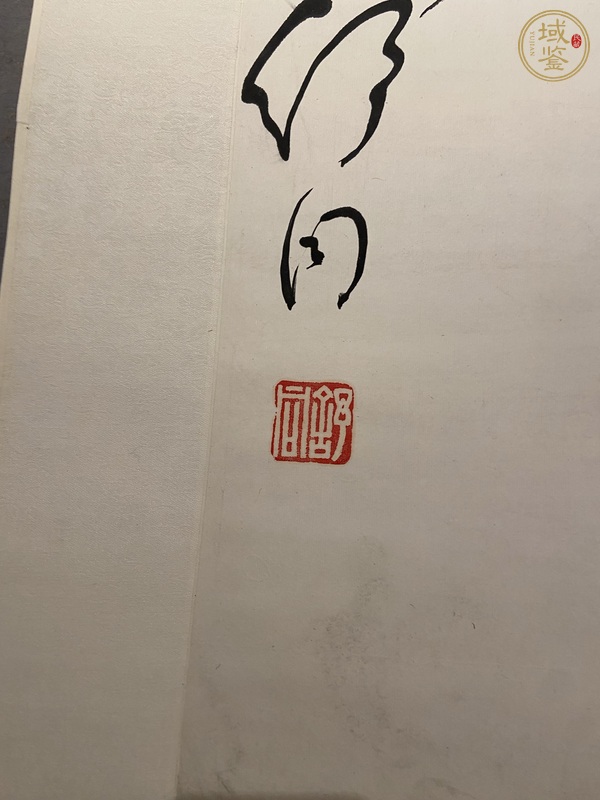 同
舒同
域鉴
YUJIAN